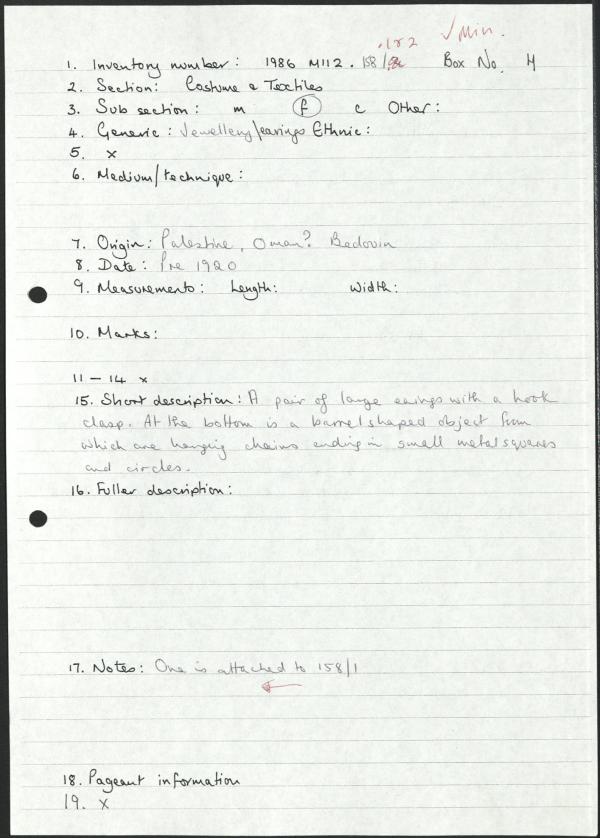 .1+2 ✓ Min.
1. Inventory number: 1986 M112.158/ Box No. 4
2. Section: Costume & Textiles
3. Sub section: m f c Other:
4. Generic: Jewellery/earings Ethnic:
5. x
6. Medium/technique:
7. Origin: Palestine, Oman? Bedouin
8. Date: Pre 1920
9. Measurements: Length: Width:
10. Marks:
11 – 14 x
15. Short description: A pair of large earings with a hook
clasp. At the bottom is a barrel shaped object from
which are hanging chains ending in small metal squares
and circles.
16. Fuller description:
17. Notes: One is attached to 158/1
18. Pageant information
19. x